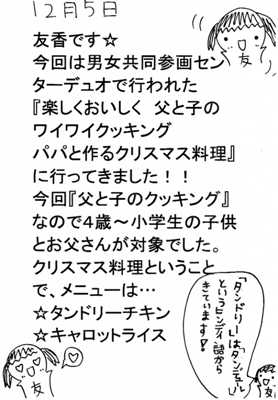 12月5日
友香です☆
今回は男女共同参画セン
ターデュオで行われた
『楽しくおいしく 父と子の
ワイワイクッキング
パパと作るクリスマス料理』
に行ってきました！！
今回『父と子のクッキング』
なので4歳～小学生の子供
とお父さんが対象でした。
クリスマス料理ということ
で、メニューは…
☆タンドリーチキン
☆キャロットライス
「タンドリー」は「タンドゥール」
というヒンディ語から
きています！
友
友
友